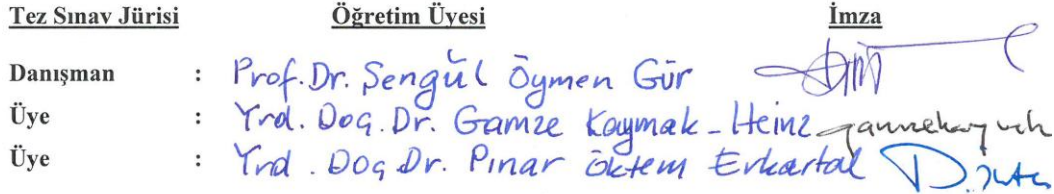 Tez Sınav Jürisi Öğretim Üyesi İmza
Danışman : Prof.Dr. Şengül Öymen Gür
Üye : Yrd. Doç.Dr. Gamze Kaymak-Heinz
Üye : Yrd. Doç Dr. Pınar Öktem Erkartal